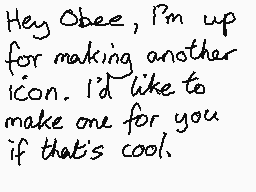 Hey Obee, I'm up
for making another
icon. I'd like to
make one for you
if that's cool.